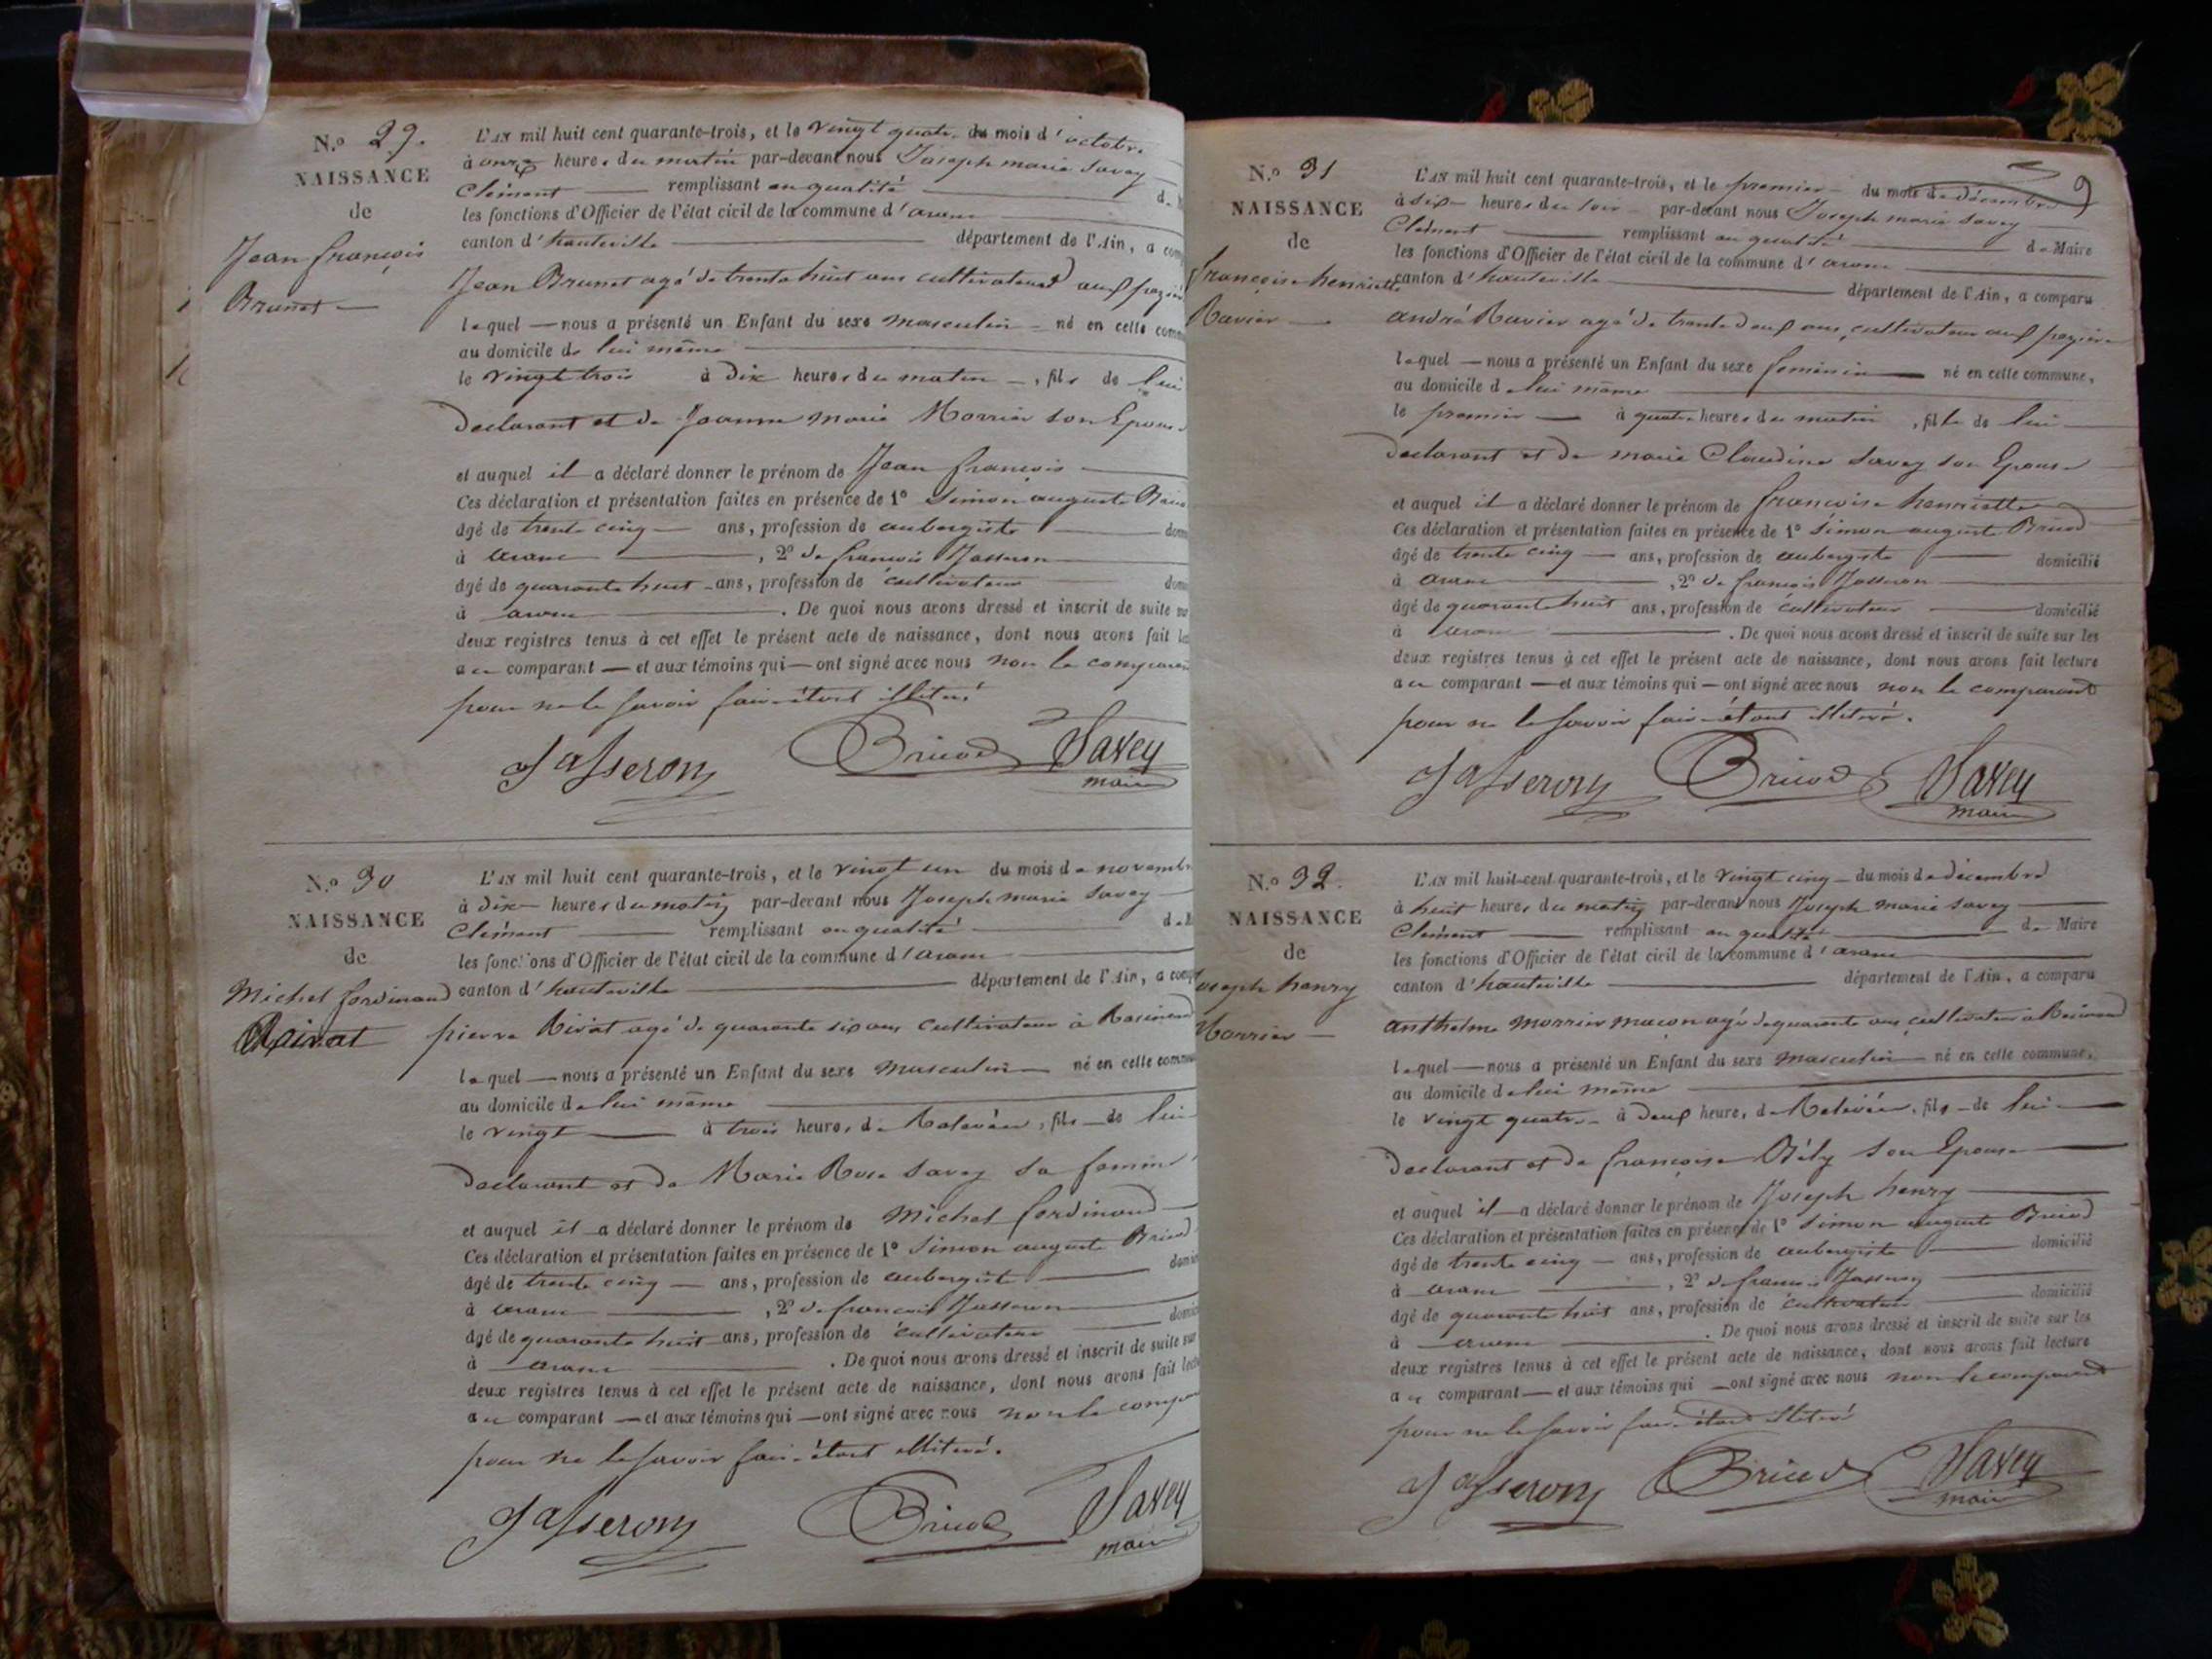 N.º 29.
NAISSANCE
de
Jean françois
Brunet
L'AN mil huit cent quarante-trois, et le vingt quatre du mois d'octobre
à onze heures du matin par-devant nous Joseph marie Savey
Clément remplissant en qualité d
les fonctions d'Officier de l'état civil de la commune d'aranc
canton d'hauteville département de l'Ain, a com
Jean Brunet agé de trente huit ans cultivateur aux
lequel nous a présenté un Enfant du sexe masculin né en cette comm
au domicile de lui même
le vingt trois à dix heures du matin, fils de lui
déclarant et de Jeanne marie Morrier son Epouse
et auquel il a déclaré donner le prénom de Jean françois
Ces déclaration et présentation faites en présence de 1º Simon auguste
âgé de trente cinq ans, profession de aubergiste dom
à aranc, 2º de françois Jasseron
âgé de quarante huit ans, profession de cultivateur dom
à aranc. De quoi nous avons dressé et inscrit de suite su
deux registres tenus à cet effet le présent acte de naissance, dont nous avons fait le
au comparant et aux témoins qui ont signé avec nous non le comparan
pour ne le savoir faire étant illiteré
Jasseron Bricod Savey
maire
N.º 30
NAISSANCE
de
Michel ferdinand
Rivat
L'AN mil huit cent quarante-trois, et le vingt un du mois de novembr
à dix heures du matin par-devant nous Joseph marie Savey
Clément remplissant en qualité d
les fonctions d'Officier de l'état civil de la commune d'aranc
canton d'hauteville département de l'Ain, a comp
pierre Rivat agé de quarante six ans cultivateur à Résinand
lequel nous a présenté un Enfant du sexe masculin né en cette commu
au domicile de lui même
le vingt à trois heures de Relevée, fils de lui
déclarant et de Marie Rose Savey sa femme
et auquel il a déclaré donner le prénom de Michel ferdinand
Ces déclaration et présentation faites en présence de 1º Simon auguste Bricod
âgé de trente cinq ans, profession de aubergiste domic
à aranc, 2º de françois Jasseron
âgé de quarante huit ans, profession de cultivateur domic
à aranc. De quoi nous avons dressé et inscrit de suite sur
deux registres tenus à cet effet le présent acte de naissance, dont nous avons fait lect
au comparant et aux témoins qui ont signé avec nous non le compa
pour ne le savoir faire étant illiteré.
Jasseron Bricod Savey
maire
9
N.º 31
NAISSANCE
de
françoise henriette
Ravier
L'AN mil huit cent quarante-trois, et le premier du mois de décembre
à six heures du soir par-devant nous Joseph marie Savey
Clément remplissant en qualité de Maire
les fonctions d'Officier de l'état civil de la commune d'aranc
canton d'hauteville département de l'Ain, a comparu
andré Ravier agé de trente deux ans, cultivateur aux
lequel nous a présenté un Enfant du sexe feminin né en cette commune,
au domicile de lui même
le premier à quatre heures du matin, fille de lui
déclarant et de marie Claudine Savey son Epouse
et auquel il a déclaré donner le prénom de françoise henriette
Ces déclaration et présentation faites en présence de 1º Simon auguste Bricod
âgé de trente cinq ans, profession de aubergiste domicilié
à aranc, 2º de françois Jasseron
âgé de quarante huit ans, profession de cultivateur domicilié
à aranc. De quoi nous avons dressé et inscrit de suite sur les
deux registres tenus à cet effet le présent acte de naissance, dont nous avons fait lecture
au comparant et aux témoins qui ont signé avec nous non le comparant
pour ne le savoir faire étant illiteré.
Jasseron Bricod Savey
maire
N.º 32.
NAISSANCE
de
Joseph henry
Morrier
L'AN mil huit cent quarante-trois, et le vingt cinq du mois de décembre
à huit heures du matin par-devant nous Joseph marie Savey
Clément remplissant en qualité de Maire
les fonctions d'Officier de l'état civil de la commune d'aranc
canton d'hauteville département de l'Ain, a comparu
anthelme morrier maçon agé de quarante ans cultivateur à Résinand
lequel nous a présenté un Enfant du sexe masculin né en cette commune,
au domicile de lui même
le vingt quatre à deux heures de Relevée, fils de lui
déclarant et de françoise Bély son Epouse
et auquel il a déclaré donner le prénom de Joseph henry
Ces déclaration et présentation faites en présence de 1º Simon auguste Bricod
âgé de trente cinq ans, profession de aubergiste domicilié
à aranc, 2º de françois Jasseron
âgé de quarante huit ans, profession de cultivateur domicilié
à aranc. De quoi nous avons dressé et inscrit de suite sur les
deux registres tenus à cet effet le présent acte de naissance, dont nous avons fait lecture
au comparant et aux témoins qui ont signé avec nous non le comparant
pour ne le savoir faire étant illiteré
Jasseron Bricod Savey
maire